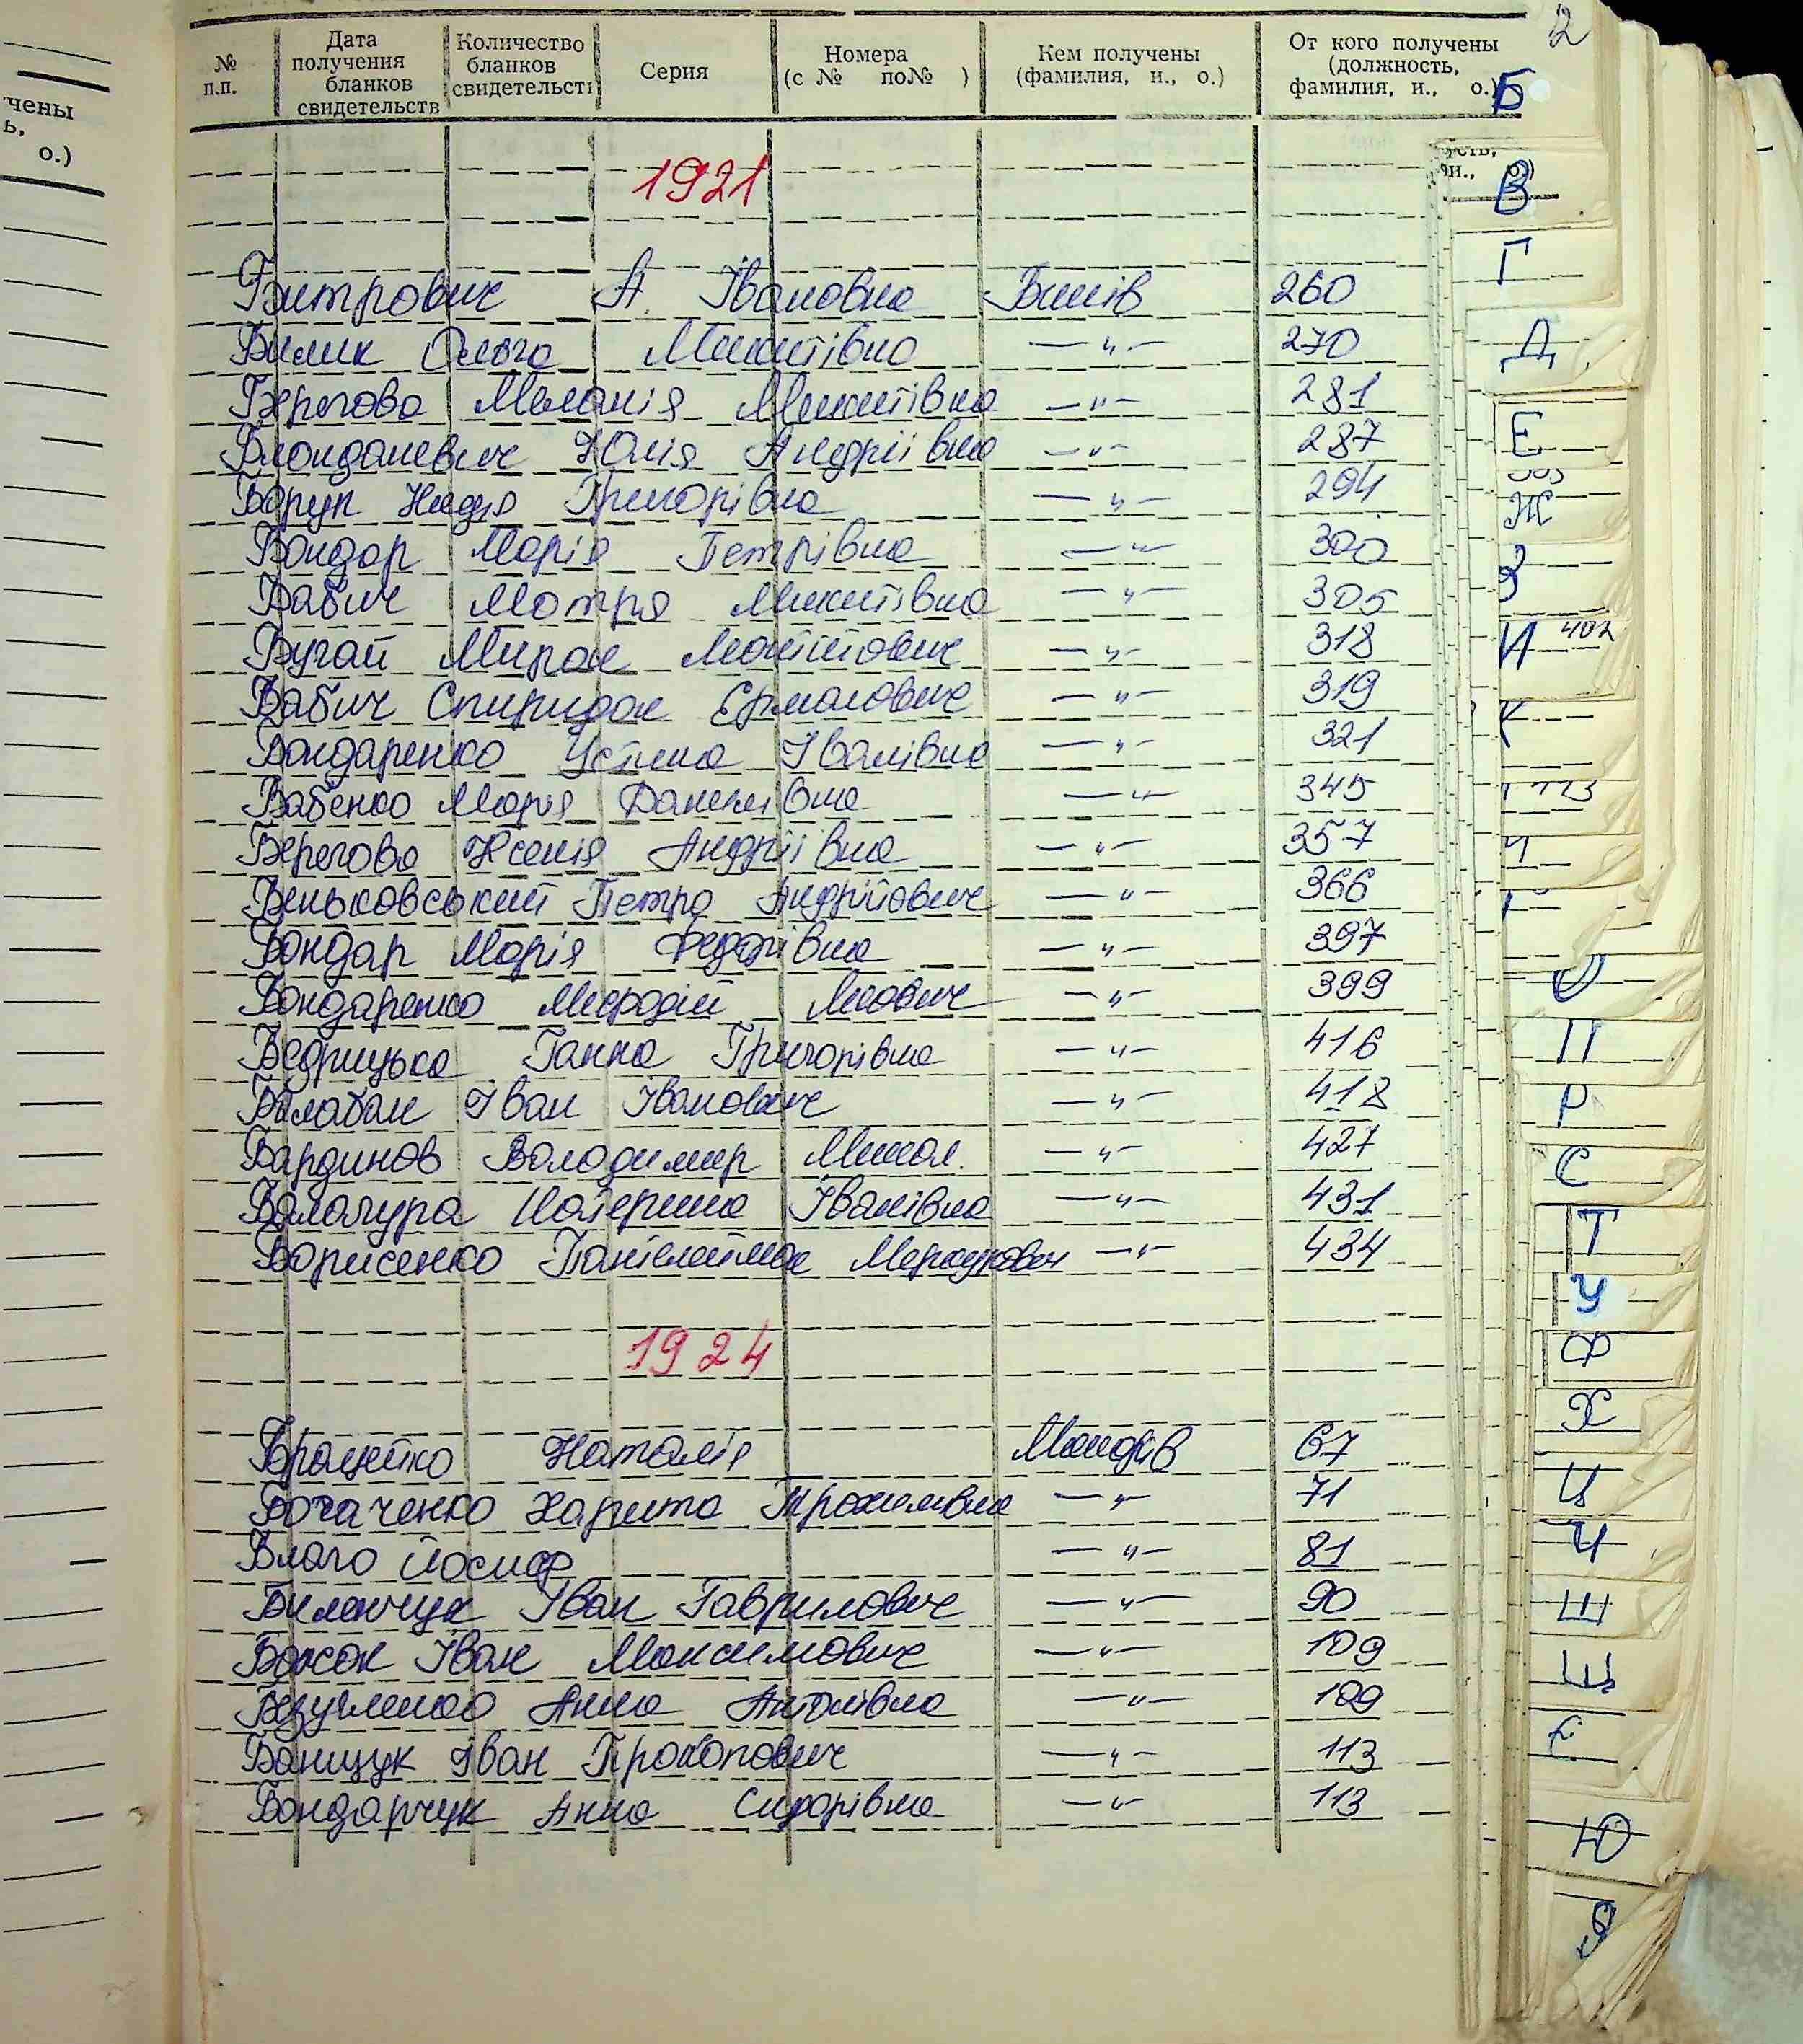 2
№ п.п. Дата получения бланков свидетельств Количество бланков свидетельст Серия Номера (с № по№ ) Кем получены (фамилия, и., о.) От кого получены (должность, фамилия, и., о.)
1921
А. Івановна 260
Билик Ольга Микитівна —„— 270
Берегова Меланія Микитівна —„— 281
Юлія Андріївна —„— 287
Надія Григорівна —„— 294
Бондар Марія Петрівна —„— 300
Бабич Мотря Микитівна —„— 305
Бугай Мирон —„— 318
Бабич Спиридон Єрмолович —„— 319
Бондаренко Устина Іванівна —„— 321
Бабенко Марія Данилівна —„— 345
Берегова Ксенія Андріївна —„— 357
Беньковський Петро Андрійович —„— 366
Бондар Марія Федорівна —„— 397
Бондаренко —„— 399
Бедрицька Ганна Григорівна —„— 416
Балабан Іван Іванович —„— 418
Бардинов Володимир Микол. —„— 427
Катерина Іванівна —„— 431
Борисенко Пантелеймон —„— 434
1924
Наталія Макарів 67
Богаченко Харита Трохимівна —„— 71
Благо Йосиф —„— 81
Биленчук Іван Гаврилович —„— 90
Божок Іван Максимович —„— 109
Анна Антонівна —„— 109
Банищук Іван Прокопович —„— 113
Бондарчук Анна Сидорівна —„— 113
Б
В
Г
Д
Е
Ж
З
И
К
О
П
Р
С
Т
У
Ф
Х
Ц
Ч
Ш
Щ
Є
Ю
Я